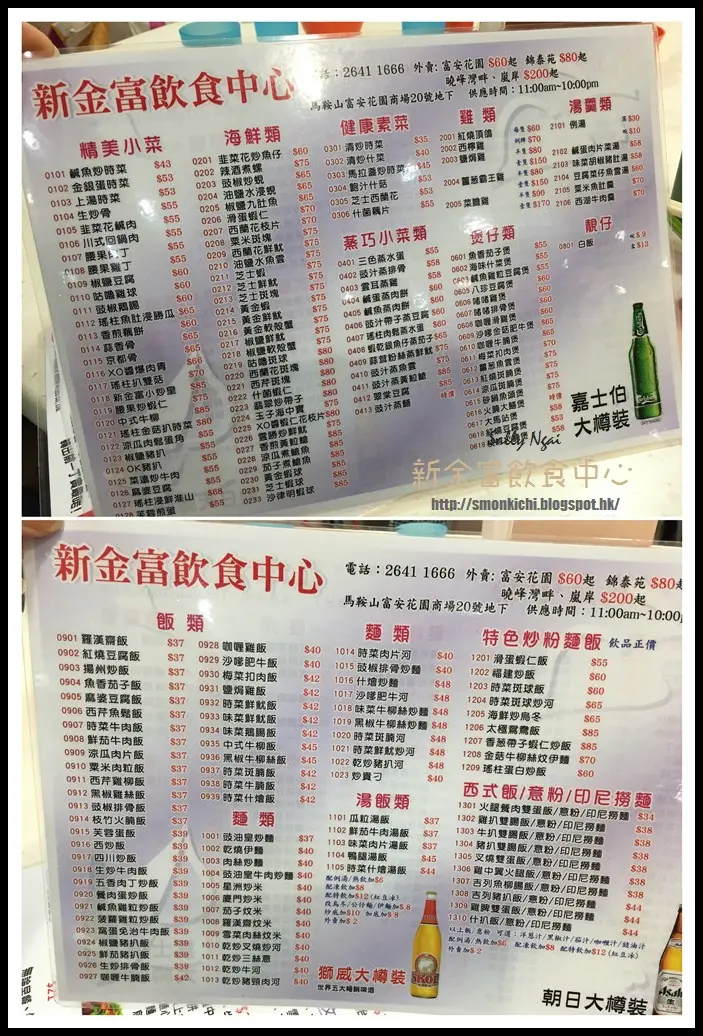 新金富飲食中心
電話：2641 1666 外賣: 富安花園 $60起 錦泰苑 $80起
曉峰灣畔、嵐岸 $200起
馬鞍山富安花園商場20號地下 供應時間：11:00am~10:00pm
精美小菜
0101 鹹魚炒時菜 $43
0102 金銀蛋時菜 $53
0103 上湯時菜 $53
0104 生炒骨 $55
0105 韭菜花鹹肉 $55
0106 川式回鍋肉 $55
0107 腰果肉丁 $55
0108 腰果雞丁 $55
0109 椒鹽豆腐 $60
0110 咕嚕雞球 $60
0111 豉椒鵝腸 $60
0112 瑤柱魚肚浸勝瓜 $65
0113 香煎藕餅 $65
0114 蒜香骨 $65
0115 京都骨
0116 XO醬爆肉青 $66
0117 瑤柱扒雙菇 $70
0118 新金富小炒皇 $85
0119 腰果炒蝦仁 $75
0120 中式牛柳
0121 瑤柱金菇扒時菜 $80
0122 涼瓜肉鬆蛋角 $55
0123 椒鹽豬扒 $55
0124 OK豬扒 $55
0125 菜遠炒牛肉 $55
0126 麻婆豆腐 $55
0127 瑤柱浸鮮淮山 $68
0128 芙蓉煎蛋 $55
海鮮類
0201 韭菜花炒魚仔 $60
0202 辣酒煮螺 $75
0203 豉椒炒蜆 $65
0204 油鹽水浸蜆 $65
0205 椒鹽九肚魚 $65
0206 滑蛋蝦仁 $70
0207 西蘭花枝片 $70
0208 粟米斑塊
0209 西蘭花鮮魷
0210 油鹽水魚雲
0211 芝士蝦
0212 芝士鮮魷
0213 芝士斑塊
0214 黃金蝦
0215 黃金鮮魷
0216 黃金軟殼蟹
0217 椒鹽鮮魷
0218 椒鹽軟殼蟹
0219 咕嚕斑球
0220 西蘭花斑塊
0221 西芹斑塊
0222 什菌蝦仁
0223 翡翠炒帶子
0224 玉子海中寶
0225 XO醬蝦仁花枝片
0226 雲勝炒鮮魷
0227 香煎黃鮫鯧
0228 涼瓜煮魷魚
0229 茄子煮魷魚
0230 黃金蝦球
0231 芝士蝦球
0233 沙律明蝦球
健康素菜
0301 清炒時菜 $35
0302 清炒什菜 $40
0303 馬拉盞炒時菜 $45
0304 銀汁什菇 $53
0305 芝士西蘭花 $53
0306 什菌藕片 $55
蒸巧小菜類
0401 三色蒸水蛋 $55
0402 豉汁蒸排骨 $58
0403 雲耳蒸雞 $58
0404 鹹蛋蒸肉餅 $60
0405 鹹魚蒸肉餅 $60
0406 豉汁帶子蒸豆腐 $60
0407 瑤柱肉鬆蒸水蛋 $60
0408 蝦乾銀魚仔蒸茄子 $65
0409 蒜茸粉絲蒸鮮魷 $75
0410 豉汁蒸魚雲
0411 豉汁蒸黃鮫鯧
0412 翠棠豆腐
0413 豉汁蒸鱔 時價
雞類
2001 紅燒頂鴿
2002 西檸雞
2003 鹽焗雞
2004 薑葱霸王雞
2005 菜膽雞
湯羹類
2101 例湯
2102 鹹蛋肉片菜湯 $58
2103 味菜胡椒豬肚湯 $58
2104 豆腐菜仔魚雲湯 $60
2105 粟米魚肚羹 $70
2106 西湖牛肉羹 $70
煲仔類
0601 魚香茄子煲 $55
0602 海味什菜煲 $55
0603 鹹魚雞粒豆腐煲
0605 八珍豆腐煲
0606 啫啫雞煲
0607 啫啫排骨煲
0608 咖喱滑雞煲
0609 沙嗲金菇肥牛煲
0610 咖喱牛腩煲
0611 梅菜扣肉煲
0612 薑葱魚雲煲
0613 紅燒斑腩煲
0614 涼瓜斑腩煲
0615 砂鍋魚頭煲
0616 火腩大鱔煲
0617 大馬站煲
0618 紅燒豆腐煲
靚仔
0801 白飯
嘉士伯
大樽裝
新金富飲食中心
http://smonkichi.blogspot.hk/
新金富飲食中心
電話：2641 1666 外賣: 富安花園 $60起 錦泰苑 $80起
曉峰灣畔、嵐岸 $200起
馬鞍山富安花園商場20號地下 供應時間：11:00am~10:00p
飯類
0901 羅漢齋飯 $37
0902 紅燒豆腐飯 $37
0903 揚州炒飯 $37
0904 魚香茄子飯 $37
0905 麻婆豆腐飯 $37
0906 西芹魚鬆飯 $37
0907 時菜牛肉飯 $37
0908 鮮茄牛肉飯 $37
0909 涼瓜肉片飯 $37
0910 粟米肉粒飯 $37
0911 西芹雞柳飯 $37
0912 黑椒雞絲飯 $37
0913 豉椒排骨飯 $37
0914 枝竹火腩飯 $37
0915 芙蓉蛋飯 $39
0916 西炒飯 $39
0917 四川炒飯 $39
0918 生炒牛肉飯 $39
0919 五香肉丁炒飯 $39
0920 餐肉蛋炒飯 $39
0921 鹹魚雞粒炒飯 $39
0922 菠蘿雞粒炒飯 $39
0923 窩蛋免治牛肉飯 $39
0924 椒鹽豬扒飯 $39
0925 鮮茄豬扒飯 $39
0926 生炒排骨飯 $39
0927 咖喱牛腩飯 $42
0928 咖喱雞飯 $40
0929 沙嗲肥牛飯 $40
0930 梅菜扣肉飯 $42
0931 鹽焗雞飯 $42
0932 時菜鮮魷飯 $42
0933 味菜鮮魷飯 $42
0934 味菜鵝腸飯 $42
0935 中式牛柳飯 $45
0936 黑椒牛柳絲飯 $45
0937 時菜斑腩飯 $42
0938 時菜牛腩飯 $42
0939 時菜什燴飯 $42
麵類
1001 豉油皇炒麵 $37
1002 乾燒伊麵 $40
1003 肉絲炒麵 $40
1004 豉油皇牛肉炒麵 $40
1005 星洲炒米 $40
1006 廈門炒米 $40
1007 茄子炆米 $40
1008 羅漢齋炆米 $40
1009 雪菜肉絲炆米 $40
1010 乾炒叉燒炒河 $40
1011 乾炒三絲意 $40
1012 乾炒牛河 $40
1013 乾炒豬頸肉河 $40
麵類
1014 時菜肉片河 $40
1015 豉椒排骨炒麵 $40
1016 什燴炒麵 $48
1017 沙嗲肥牛河 $48
1018 味菜牛柳絲炒麵 $48
1019 黑椒牛柳絲炒麵 $48
1020 時菜斑腩河 $48
1021 時菜鮮魷炒河 $48
1022 乾炒豬扒河 $48
1023 炒貴刁 $40
湯飯類
1101 瓜粒湯飯 $37
1102 鮮茄牛肉湯飯 $37
1103 味菜肉片湯飯 $37
1104 鴨腿湯飯 $45
1105 時菜什燴湯飯 $44
配例湯/熱飲加$6
配凍飲加$8
配特飲加$12(紅豆冰)
改烏冬/公仔麵/伊麵加$ 8
炒底加$10 加底加$ 8
外賣加$ 2
獅威大樽裝
世界五大暢銷啤酒
SKOL
特色炒粉麵飯 飲品正價
1201 滑蛋蝦仁飯 $55
1202 福建炒飯 $60
1203 時菜斑球飯 $60
1204 時菜斑球炒河 $65
1205 海鮮炒烏冬 $65
1206 太極鴛鴦飯 $85
1207 香葱帶子蝦仁炒飯 $85
1208 金菇牛柳絲炆伊麵 $70
1209 瑤柱蛋白炒飯 $60
西式飯/意粉/印尼撈麵
1301 火腿餐肉雙蛋飯/意粉/印尼撈麵 $34
1302 雞扒雙腸飯/意粉/印尼撈麵 $38
1303 牛扒雙腸飯/意粉/印尼撈麵 $38
1304 豬扒雙腸飯/意粉/印尼撈麵 $38
1305 叉燒雙蛋飯/意粉/印尼撈麵 $38
1306 雞中翼火腿飯/意粉/印尼撈麵 $38
1307 吉列魚柳腸飯/意粉/印尼撈麵 $38
1308 吉列豬扒飯/意粉/印尼撈麵 $38
1309 雞髀雙蛋飯/意粉/印尼撈麵 $44
1310 什扒飯/意粉/印尼撈麵 $44
以上飯/意粉 可選：洋葱汁/黑椒汁/茄汁/咖喱汁/豉油汁
配例湯/熱飲加$6 配凍飲加$8 配特飲加$12(紅豆冰)
外賣加$ 2
朝日大樽裝
Asahi